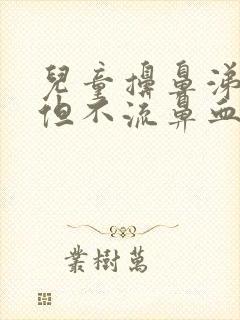 兒童擤鼻涕
但不流鼻血
葉樹萬